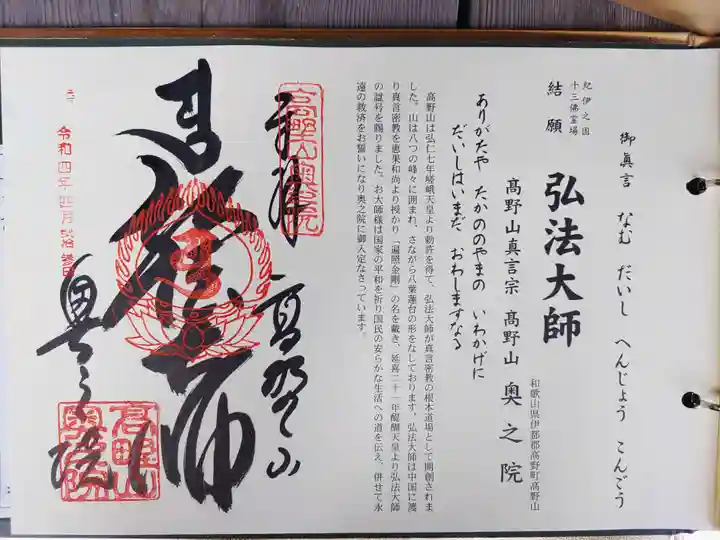 御眞言　なむ　だいし　へんじょう　こんごう
紀伊之国
十三佛霊場
結願
弘法大師
和歌山県伊都郡高野町高野山
高野山真言宗　高野山　奥之院
ありがたや　たかののやまの　いわかげに
だいしはいまだ　おわしますなる
高野山は弘仁七年嵯峨天皇より勅許を得て、弘法大師が真言密教の根本道場として開創されま
した。山は八つの峰々に囲まれ、さながら八葉蓮台の形をなしております。弘法大師は中国に渡
り真言密教を恵果和尚より授かり「遍照金剛」の名を戴き、延喜二十一年醍醐天皇より弘法大師
の諡号を賜りました。お大師様は国家の平和を祈り国民の安らかな生活への道を伝え、併せて永
遠の救済をお誓いになり奥之院に御入定なさっています。
高野山奥之院
奉拝　高野山
弘法大師
奥之院
令和四年四月弐拾参日
高野山
奥之院